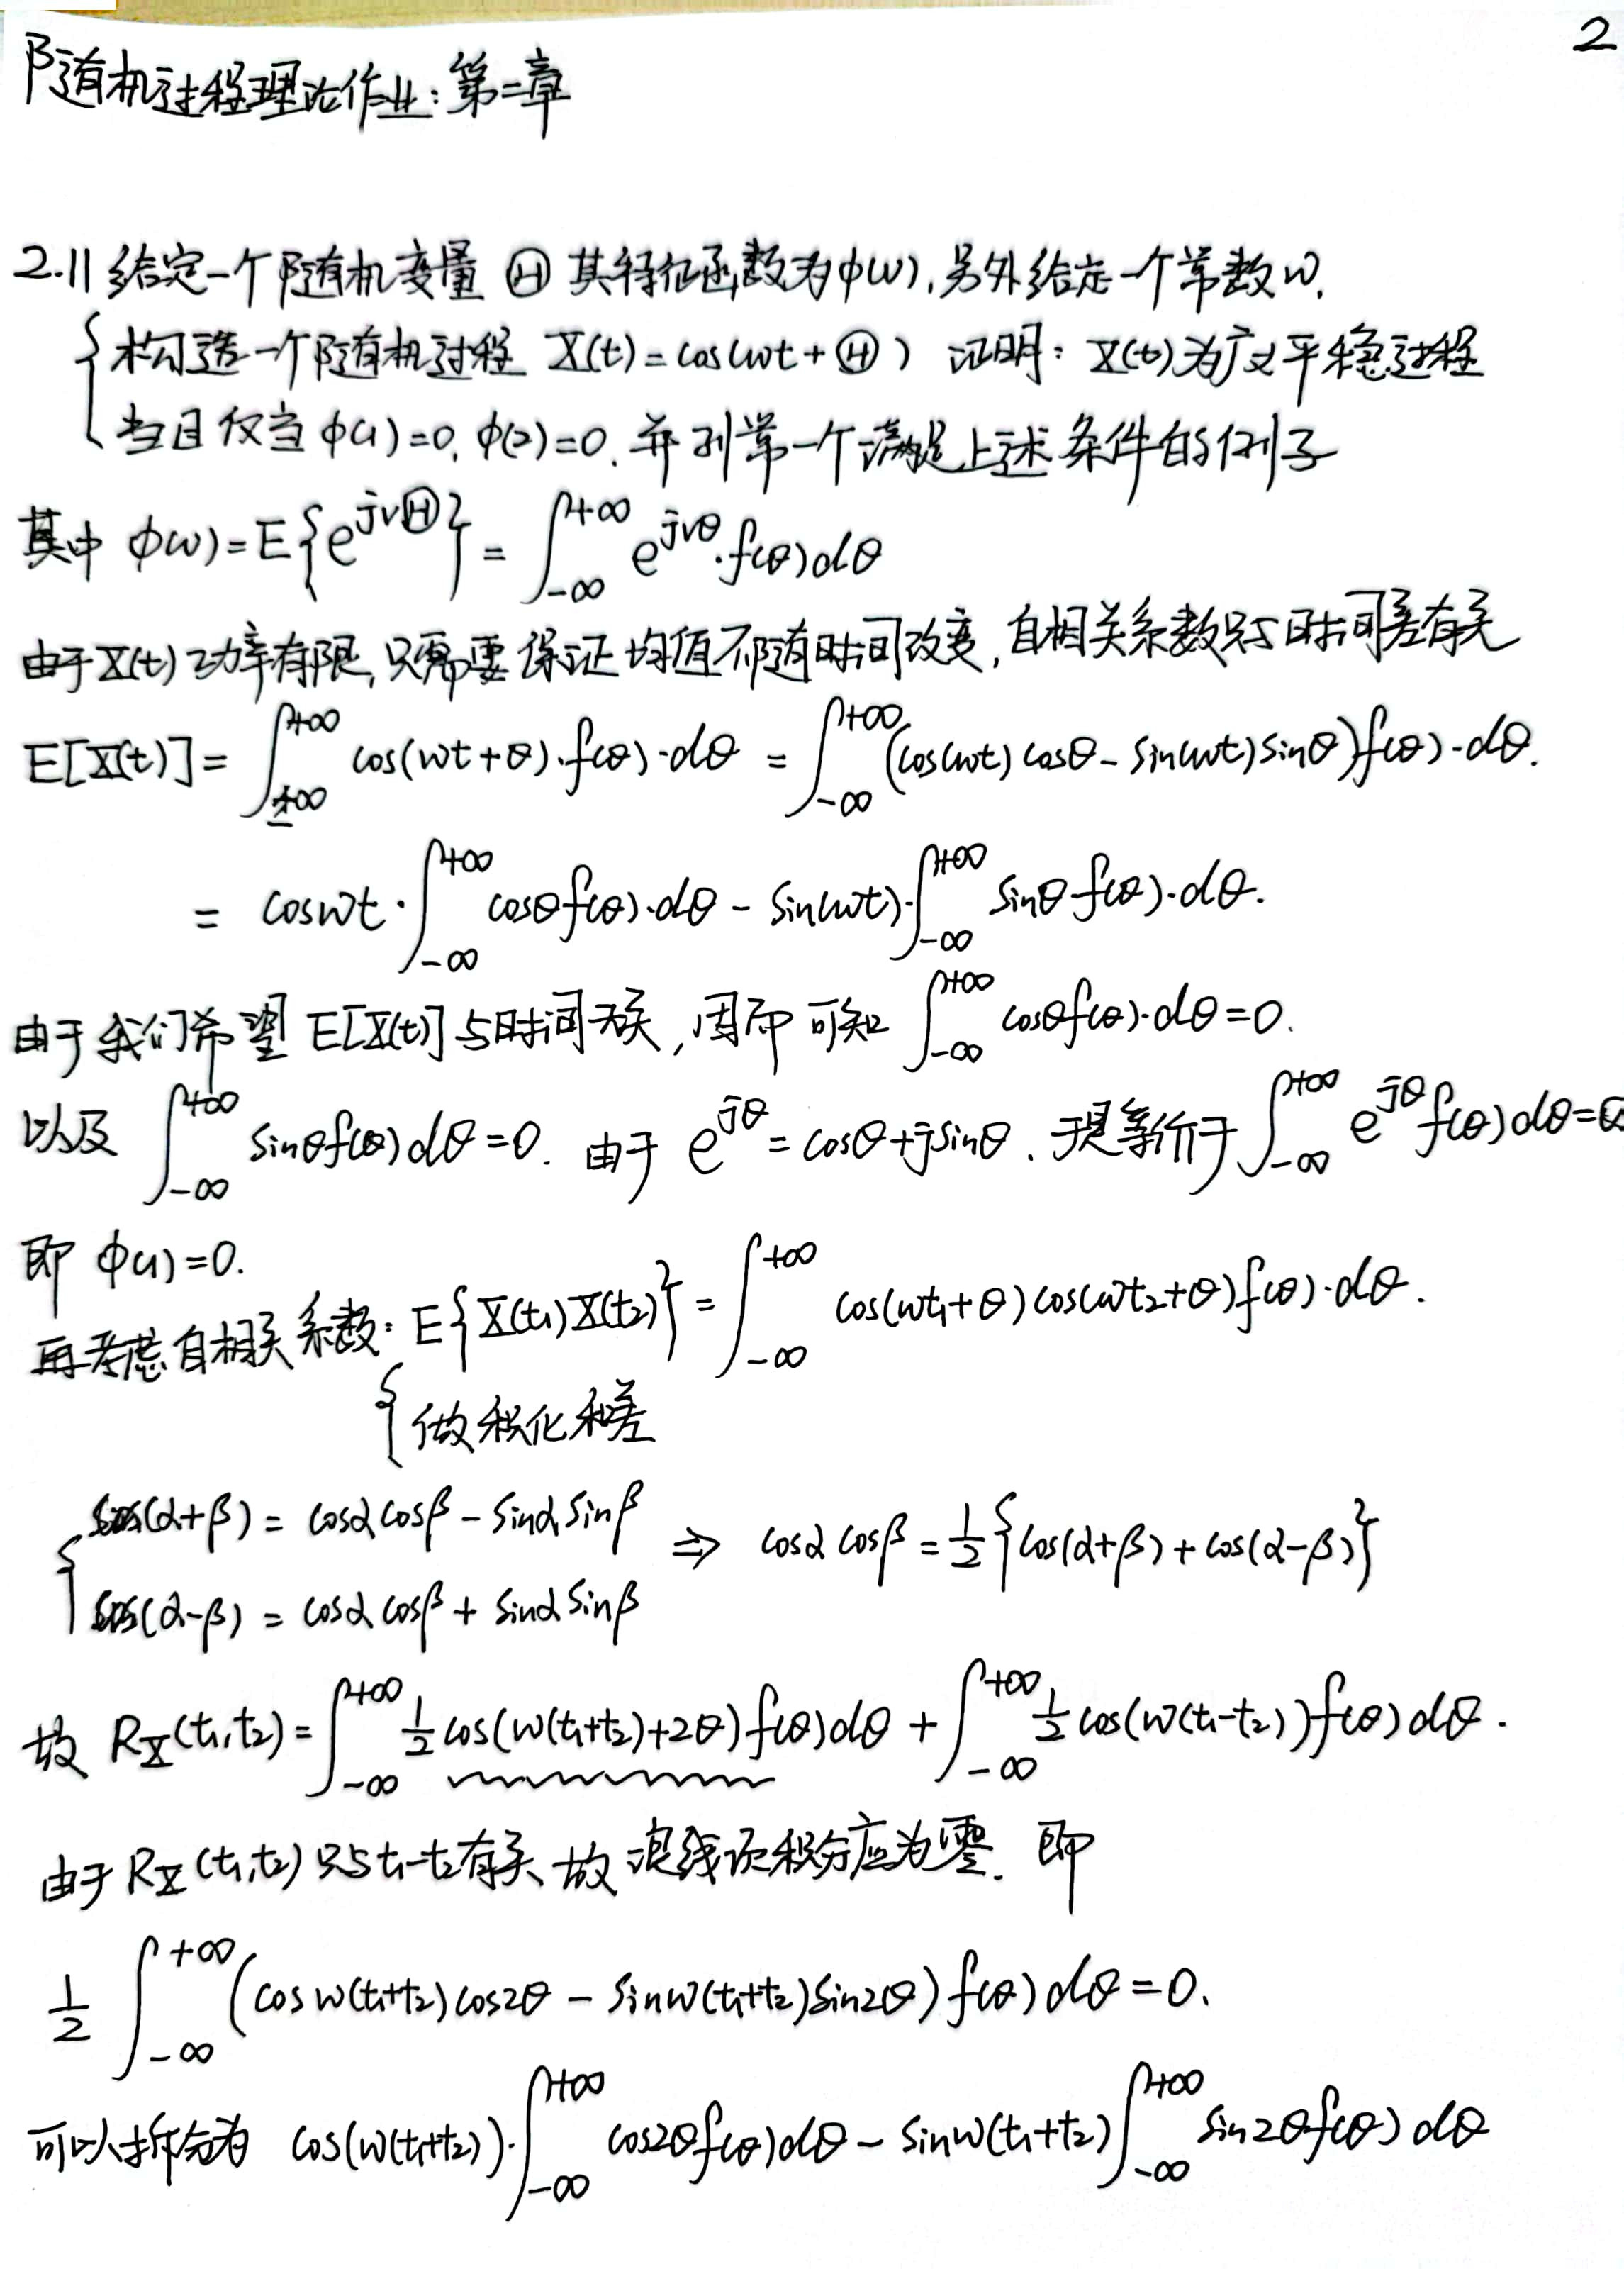 2
随机过程理论作业：第二章
2.11 给定一个随机变量 Ⓗ 其特征函数为φ(v), 另外给定一个常数w.
构造一个随机过程 X(t)=cos(wt+Ⓗ) 证明：X(t)为广义平稳过程
当且仅当 φ(1)=0, φ(2)=0. 并列举一个满足上述条件的例子
其中 φ(v)=E{e^{jvⒽ}} = ∫_{-∞}^{+∞} e^{jvθ}·f(θ)dθ
由于X(t)功率有限, 只需要保证均值不随时间改变, 自相关系数只与时间差有关
E[X(t)] = ∫_{-∞}^{+∞} cos(wt+θ)·f(θ)·dθ = ∫_{-∞}^{+∞} (cos(wt)cosθ - sin(wt)sinθ)f(θ)·dθ.
= coswt·∫_{-∞}^{+∞} cosθf(θ)·dθ - sin(wt)·∫_{-∞}^{+∞} sinθf(θ)·dθ.
由于我们希望 E[X(t)] 与时间无关, 因而可知 ∫_{-∞}^{+∞} cosθf(θ)·dθ=0.
以及 ∫_{-∞}^{+∞} sinθf(θ)dθ=0. 由于 e^{jθ}=cosθ+jsinθ. 于是等价于 ∫_{-∞}^{+∞} e^{jθ}f(θ)dθ=0
即 φ(1)=0.
再考虑自相关系数：E{X(t₁)X(t₂)} = ∫_{-∞}^{+∞} cos(wt₁+θ)cos(wt₂+θ)f(θ)·dθ.
做积化和差
cos(α+β) = cosαcosβ - sinαsinβ ⇒ cosαcosβ = 1/2{cos(α+β)+cos(α-β)}
cos(α-β) = cosαcosβ + sinαsinβ
故 R_X(t₁,t₂) = ∫_{-∞}^{+∞} 1/2 cos(w(t₁+t₂)+2θ)f(θ)dθ + ∫_{-∞}^{+∞} 1/2 cos(w(t₁-t₂))f(θ)dθ.
由于 R_X(t₁,t₂) 只与t₁-t₂有关, 故浪线项积分应为零. 即
1/2 ∫_{-∞}^{+∞} (cosw(t₁+t₂)cos2θ - sinw(t₁+t₂)sin2θ)f(θ)dθ=0.
可以拆分为 cos(w(t₁+t₂))·∫_{-∞}^{+∞} cos2θf(θ)dθ - sinw(t₁+t₂)∫_{-∞}^{+∞} sin2θf(θ)dθ